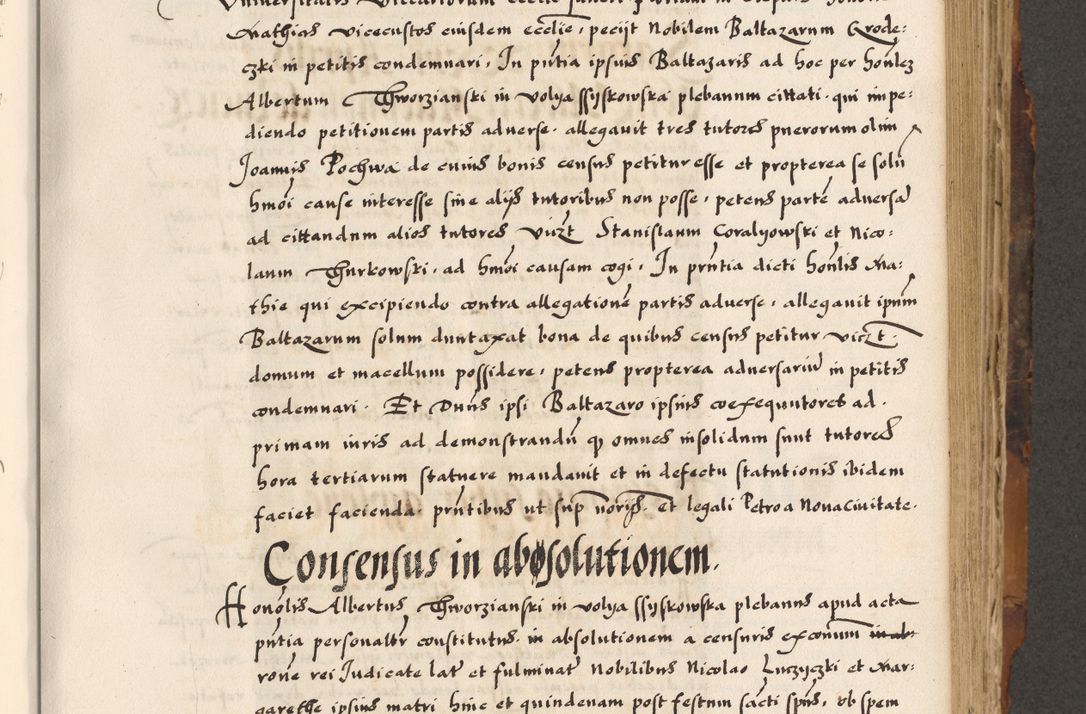 Vniuersitatis Viccariorum eccle sancti floriani in Clepar
Mathias vicecustos eiusdem ecclie, pecijt Nobilem Baltazarum Grode:
czki in petitis condemnari. In pntia ipsius Baltazaris ad hoc per honlez
Albertum Thworzianski in volya Ssyskowska plebanum cittati. qui impe:
diendo petitionem partis aduerse. allegauit tres tutores puerorum olim
Joannis Pochwa de cuius bonis census petitur esse et propterea se solu
hmoi cause interesse sine alijs tutoribus non posse, petens parte aduersa
ad cittandum alios tutores vuzt Stanislaum Coralyowski et Nico:
laum Thurkowski. ad hmoi causam cogi. In prntia dicti honlis Ma:
thie qui excipiendo contra allegatione partis aduerse, allegauit ipum
Baltazarum solum duntaxat bona de quibus census petitur vict.
domum et macellum possidere, petens propterea aduersariu in petitis
condemnari. Et Duns ipsi Baltazaro ipsius coexequutores ad.
primam iuris ad demonstrandu q omnes insolidum sunt tutores
hora tertiarum statuere mandauit et in defectu statutionis ibidem
faciet facienda. prntibus ut sup noris. et legali Petro a Nova ciuitate.
Consensus in absolutionem.
Honolis Albertus Thworzianski in volya Ssyskowska plebanus apud acta
pntia personaltr constitutus. in absolutionem a censuris exconum in ab
rone rei Judicate lat et fulminat Nobilibus Nicolao Luczyczki et Mar:
garethe ipsius matri hinc et quindenam post festum sacti spus, ob spem